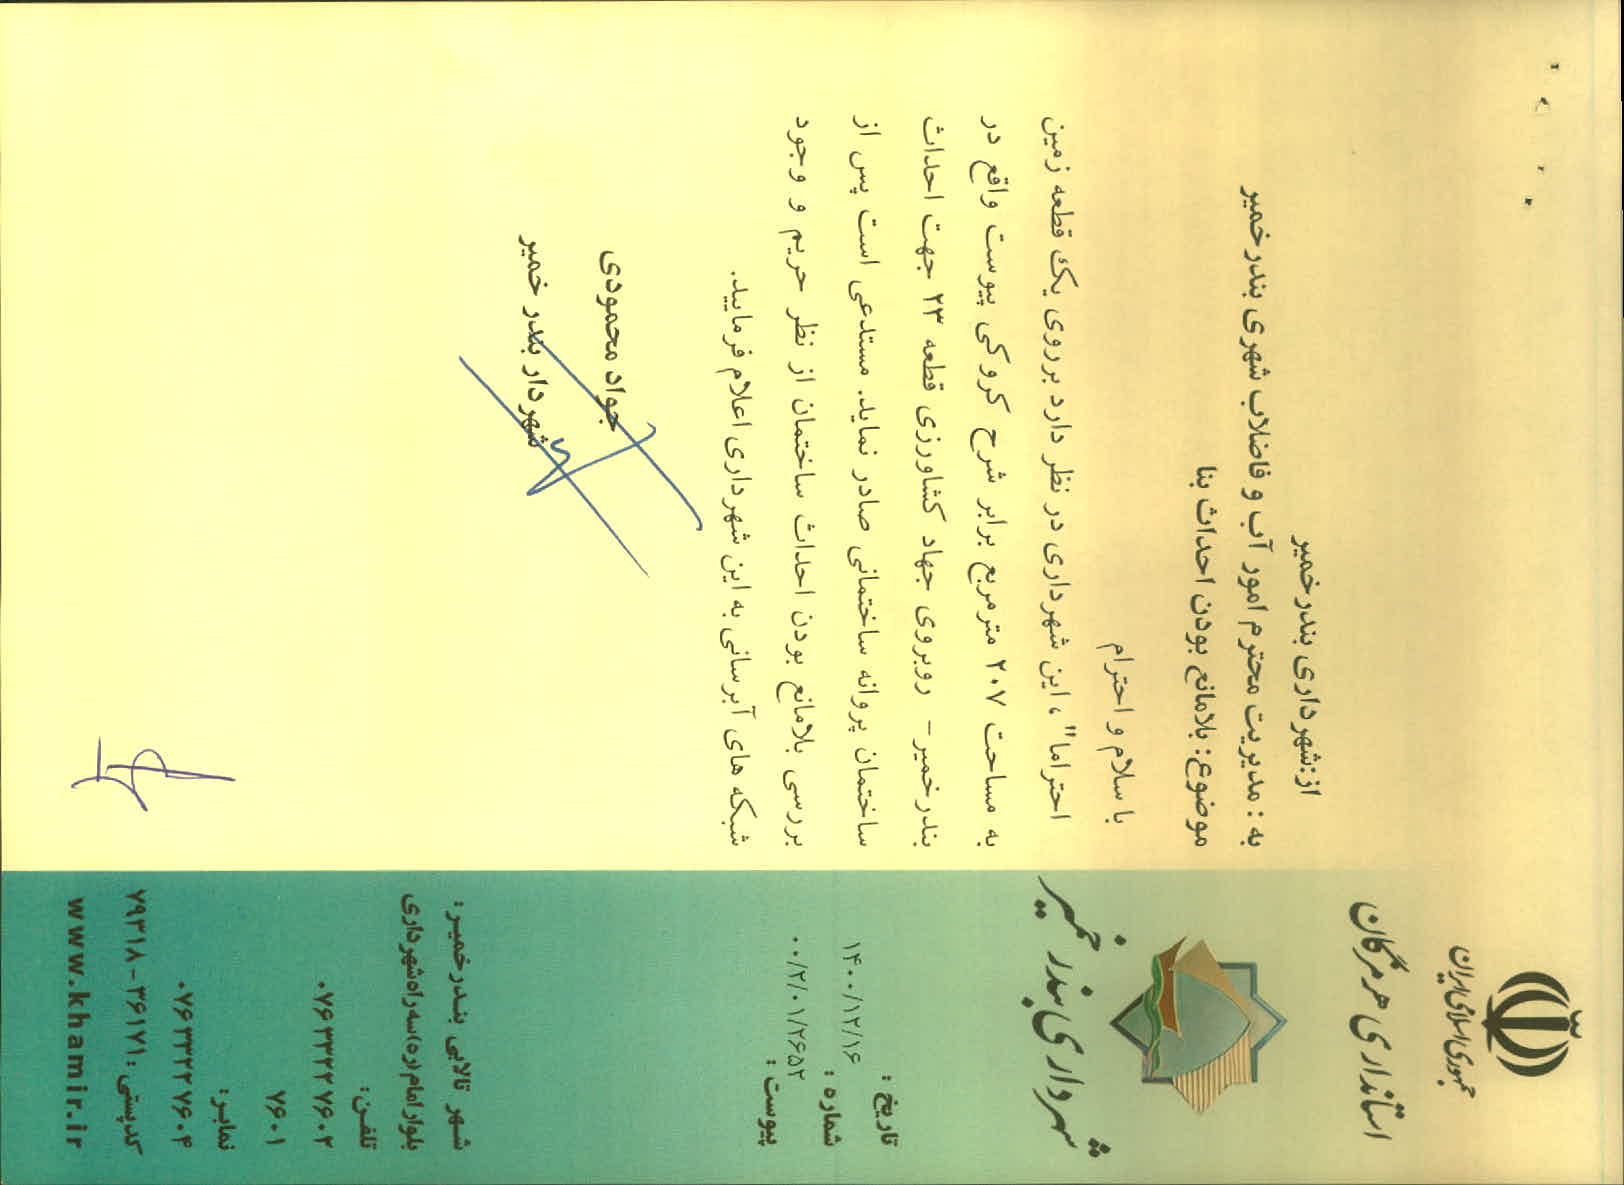 جمهوری اسلامی ایران
استانداری هرمزگان
شهرداری بندر خمیر
تاریخ :
۱۴۰۰/۱۲/۱۶
شماره :
۰۰/۲/۰۱/۲۶۵۲
پیوست :
از:شهرداری بندرخمیر
به : مدیریت محترم امور آب و فاضلاب شهری بندرخمیر
موضوع: بلامانع بودن احداث بنا
با سلام و احترام
احتراما" ، این شهرداری در نظر دارد برروی یک قطعه زمین
به مساحت ۲۰۷ مترمربع برابر شرح کروکی پیوست واقع در
بندرخمیر- روبروی جهاد کشاورزی قطعه ۲۳ جهت احداث
ساختمان پروانه ساختمانی صادر نماید. مستدعی است پس از
بررسی بلامانع بودن احداث ساختمان از نظر حریم و وجود
شبکه های آبرسانی به این شهرداری اعلام فرمایید.
جواد محمودی
شهردار بندر خمیر
شهر تالابی بندرخمیر:
بلوار امام (ره) سه راه شهرداری
تلفن:
۰۷۶۳۳۲۲۷۶۰۲
۷۶۰۱
نمابر:
۰۷۶۳۳۲۲۷۶۰۴
کدپستی : ۳۶۱۷۱ - ۷۹۳۱۸
www.khamir.ir